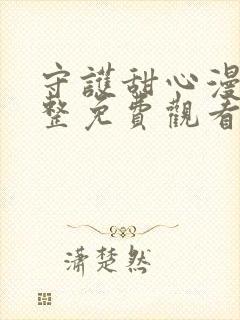 守護甜心漫
整免費觀看
瀟楚然